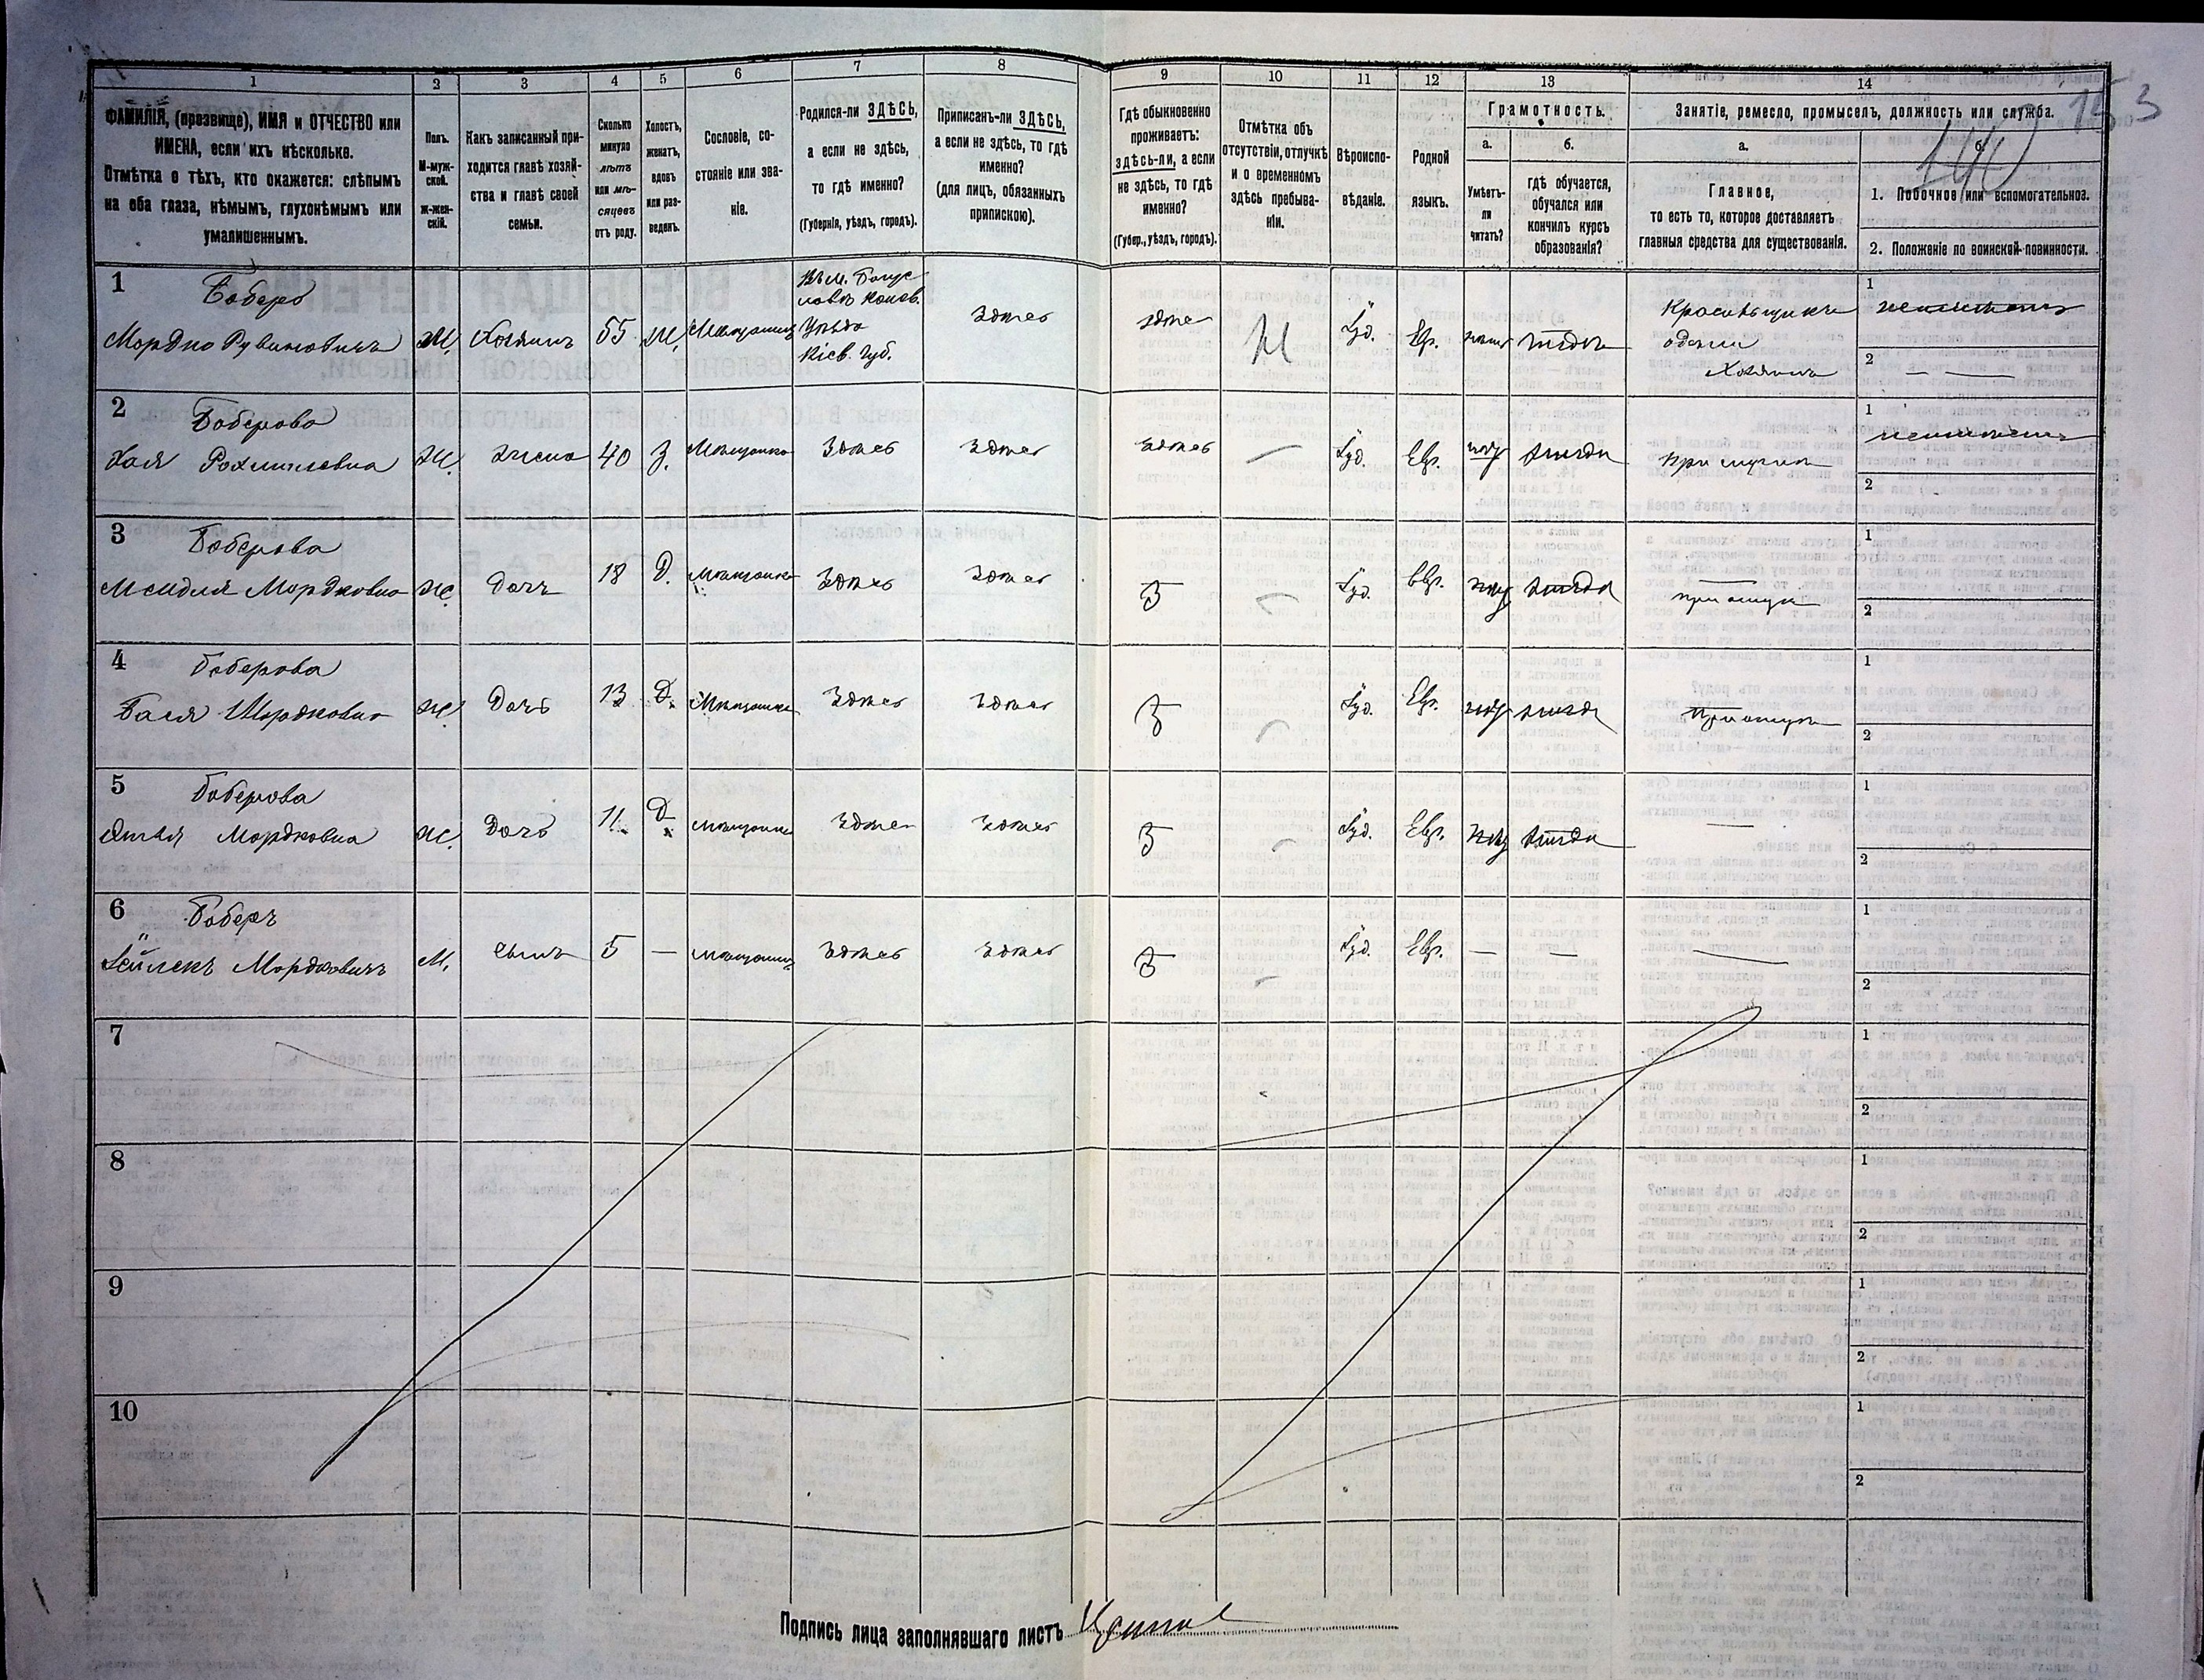 1 2 3 4 5 6 7 8 9 10 11 12 13 14
153
140
ФАМИЛІЯ, (прозвище), ИМЯ и ОТЧЕСТВО или
ИМЕНА, если ихъ нѣсколько.
Отмѣтка о тѣхъ, кто окажется: слѣпымъ
на оба глаза, нѣмымъ, глухонѣмымъ или
умалишеннымъ.
Полъ.
М-муж-
ской.
Ж-жен-
скій.
Какъ записанный при-
ходится главѣ хозяй-
ства и главѣ своей
семьи.
Сколько
минуло
лѣтъ
или мѣ-
сяцевъ
отъ роду.
Холостъ,
женатъ,
вдовъ
или раз-
веденъ.
Сословіе, со-
стояніе или зва-
ніе.
Родился-ли ЗДѢСЬ,
а если не здѣсь,
то гдѣ именно?
(Губернія, уѣздъ, городъ).
Приписанъ-ли ЗДѢСЬ,
а если не здѣсь, то гдѣ
именно?
(для лицъ, обязанныхъ
припискою).
Гдѣ обыкновенно
проживаетъ:
здѣсь-ли, а если
не здѣсь, то гдѣ
именно?
(Губер., уѣздъ, городъ).
Отмѣтка объ
отсутствіи, отлучкѣ
и о временномъ
здѣсь пребыва-
ніи.
Вѣроиспо-
вѣданіе.
Родной
языкъ.
Грамотность.
а.
Умѣетъ-
ли
читать?
б.
гдѣ обучается,
обучался или
кончилъ курсъ
образованія?
Занятіе, ремесло, промыселъ, должность или служба.
а.
Главное,
то есть то, которое доставляетъ
главныя средства для существованія.
б.
1. Побочное или вспомогательное.
2. Положеніе по воинской повинности.
1 Боберъ
Мордко Рувиновичъ М. Хозяинъ 55 Ж. Мещанинъ
Въ м. Богус
лавѣ Канев.
Уѣзда
Кіев. Губ.
Здѣсь здѣсь Іуд. Евр.
Красильщикъ
одежи
Хозяинъ
1
2 — —
2 Боберова
Хая Ж. Жена 40 З. Мещанка Здѣсь Здѣсь Здѣсь — Іуд. Евр.
При мужѣ
1
2
3 Боберова
Мордковна Ж. Дочь 18 Д. Мещанка Здѣсь Здѣсь З Іуд. Евр.
при отцѣ
1
2
4 Боберова
Бася Мордковна Ж. Дочь 13 Д. Мещанка Здѣсь Здѣсь З Іуд. Евр.
При отцѣ
1
2
5 Боберова
Мордковна Ж. Дочь 11 Д. Мещанка Здѣсь Здѣсь З Іуд. Евр. —
1
2
6 Боберъ
Мордковичъ М. Сынъ 5 — Мещанинъ Здѣсь Здѣсь З Іуд. Евр. — — —
1
2
7
1
2
8
1
2
9
1
2
10
1
2
Подпись лица заполнявшаго листъ